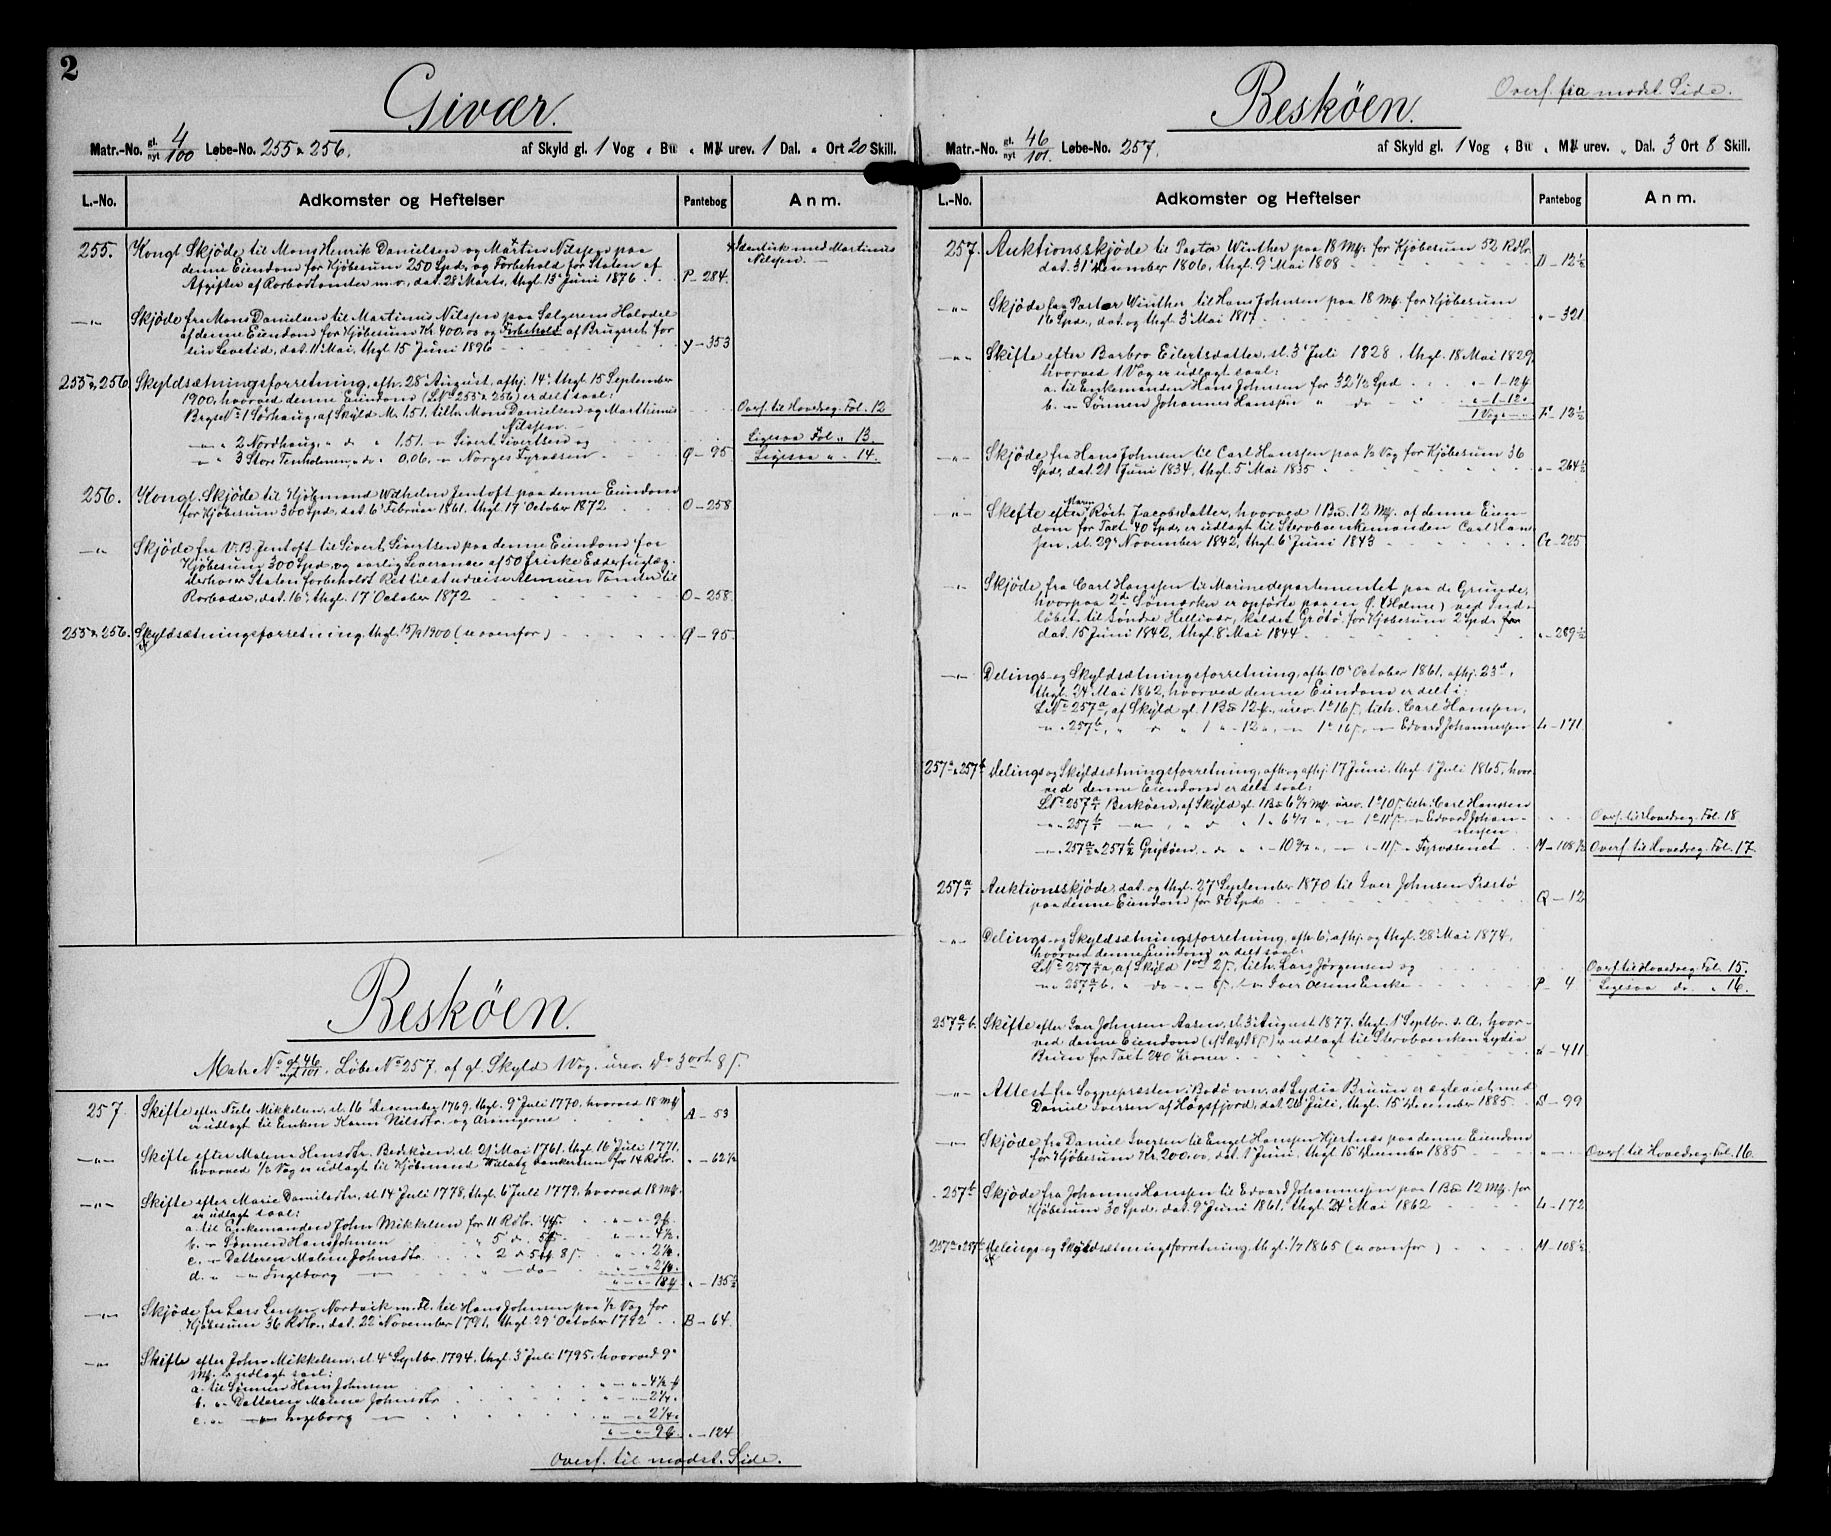 2
Givær.
Matr.-No. gl. nyt 4/100 Løbe-No. 255 & 256. af Skyld gl. 1 Vog " Bu " M℔ urev. 1 Dal. " Ort 20 Skill.
L.-No. Adkomster og Heftelser Pantebog Anm.
255. Kongl. Skjöde til Mons Henrik Danielsen og Martin Nilssen paa
denne Eiendom for Kjöbesum 250 Spd, og Forbehold for Staten af
Afgifter af Rorbodtomter m.v., dat. 28 Marts, thgl. 15 Juni 1876 P-284.
Identisk med Martinus
Nilssen.
—"— Skjöde fra Mons Danielsen til Martinus Nilssen paa Sælgerens Halvdel
af denne Eiendom for Kjöbesum Kr. 400,00 og Forbehold af Brugsret for
sin Levetid, dat. 11 Mai, thgl. 15 Juni 1896 y-353
255 & 256 Skyldsætningsforretning, afh. 28 August, afhj. 14, thgl. 15 September
1900, hvorved denne Eiendom (LNo 255 & 256) er delt saal:
Brgs No 1 Sörhaug, af Skyld M. 1.51, tilh. Mons Danielsen og Marthinus
Nilssen. Overf. til Hovedreg. Fol. 12
—"— " 2 Nordhaug, " do " 1,51. — Sivert Sivertsen og Ligesaa Fol. " 13.
—"— " 3 Store Tenholmen, " do " 0,06. — Norges Fyrvæsen Q-95 Ligesaa " " 14.
256. Kongl. Skjöde til Kjöbmand Wilhelm Jentoft paa denne Eiendom
for Kjöbesum 300 Spd, dat. 6 Februar 1861, thgl. 17 October 1872 O-258
—"— Skjöde fra V. B. Jentoft til Sivert Sivertsen paa denne Eiendom for
Kjöbesum 300 Spd, og aarlig Leverance af 50 friske Edderfuglæg.
Derhos er Staten forbeholdt Ret til at udvise Almuen Tomter til
Rorboder, dat. 16, thgl. 17 October 1872 O-258.
255 & 256. Skyldsætningsforretning, thgl. 15/9 1900 (se ovenfor) Q-95
Beskøen.
Matr No gl 46 nyt 101. Løbe No 257. af gl. Skyld 1 Vog. urev. Do 3 ort 8 ß.
257. Skifte efter Niels Mikkelsen, st. 16 December 1769, thgl. 9 Juli 1770, hvorved 18 M℔
er udlagt til Enken Karen Nilsdtr. og Arvingerne A-53
—"— Skifte efter Malena Hansdtr. Beskøen, st. 21 Mai 1761, thgl. 16 Juli 1771,
hvorved 1/2 Vog er udlagt til Kjöbmand for 14 Rdlr. "-62 1/2
—"— Skifte efter Marie Danilsdtr, st. 14 Juli 1778, thgl. 6 Juli 1779, hvorved 18 M℔.
er udlagt saal:
a. til Enkemanden John Mikkelsen for 11 Rdlr. " - " - 9 ℔.
b. — Sönnen Hans Johnsen " 5 do. " - " - 4 1/2.
c. — Datteren Malene Johnsdtr " 2 " 8 ß. " - " - 2 1/4.
d. " — Ingeborg — " — do — " - " - 2 1/4.
" - " - 18 ℔ "-135 1/2
—"— Skjöde fra Lars Nordvik m. Fl. til Hans Johnsen paa 1/2 Vog for
Kjöbesum 36 Rdlr., dat. 22 November 1791, thgl. 29 October 1792 B-64.
—"— Skifte efter John Mikkelsen, st. 4 Septbr. 1794, thgl. 3 Juli 1795, hvorved 9
M℔. er udlagt saal:
a. til Sönnen Hans Johnsen " - " - 4 1/2 ℔
b. " Datteren Malene Johnsdtr " - " - 2 1/4.
c. " —"— Ingeborg — " - " - 2 1/4.
" - " - 9 ℔. "-124
Overf. til modst. Side.
Beskøen.
Overf. fra modst. Side.
Matr.-No. gl. nyt 46/101. Løbe-No. 257. af Skyld gl. 1 Vog " Bu " M℔ urev. " Dal. 3 Ort 8 Skill.
L.-No. Adkomster og Heftelser Pantebog Anm.
257. Auktionsskjöde til Pastor Winther paa 18 M℔. for Kjöbesum 52 Rdlr.
dat. 31 December 1806, thgl. 9 Mai 1808 D-12 1/2
—"— Skjöde fra Pastor Winther til Hans Johnsen paa 18 M℔. for Kjöbesum
16 Spd., dat. og thgl. 3 Mai 1817 "-321
—"— Skifte efter Barbro Eilertsdatter, st. 3 Juli 1828, thgl. 18 Mai 1829,
hvorved 1 Vog er udlagt saal:
a. til Enkemanden Hans Johnsen for 32 1/2 Spd " - 1 - 12 ℔
b. — Sönnen Johannes Hanssen " do " - 1 - 12 "
1 Vog " - " F-12 1/2
—"— Skjöde fra Hans Johnsen til Carl Hanssen paa 1/2 Vog for Kjöbesum 36
Spd, dat. 21 Juni 1834, thgl. 5 Mai 1835 "-264 1/2
—"— Skifte efter Maren Röst Jacobsdatter, hvorved 1 Bu. 12 M℔. af denne Eien-
dom for Taxt 40 Spd, er udlagt til Stervboenkemanden Carl Han-
sen, st. 29 November 1842, thgl. 6 Juni 1843 G-225
—"— Skjöde fra Carl Hanssen til Marinedepartementet paa de Grunde,
hvorpaa 2de Sömærker er opförte paa en Ö. (Holme) ved Ind-
löbet til Söndre Helliver, kaldet Grötö for Kjöbesum 2 Spd.
dat. 15 Juni 1842, thgl. 8 Mai 1844 "-289 1/2
—"— Delings- og Skyldsætningsforretning, afh. 10 October 1861, afhj. 23d,
thgl. 24 Mai 1862, hvorved denne Eiendom er delt i:
LNo 257a, af Skyld gl. 1 Bu 12 ℔., urev. 1 o 16 ß, tilh. Carl Hanssen,
—"— 257b, " do " 1 " - 12 ", — 1 o 16 ß, — Edvard Johannessen L-171
257a & 257b Delings- og Skyldsætningsforretning, afh. og afhj. 17 Juni, thgl. 1 Juli 1865, hvor-
ved denne Eiendom er delt saal:
LNo 257a/1 Beskøen, af Skyld gl. 1 Bu 6 6/7 M℔. urev. 1 o 10 ß, tilh. Carl Hanssen
—"— 257b/1 —"—, " do " 1 " 6 6/7 ", — 1 o 11 ß. — Edvard Johan-
nessen. Overf. til Hovedreg. Fol. 18
—"— 257a/2 & 257b/2 Grytöen " do " " - 10 2/7 ", — " 11 ß — Fyrvæsenet M-108 1/2 Overf. til Hovedreg. Fol. 17.
257a/1 Auktionsskjöde, dat. og thgl. 27 September 1870 til Iver Johnsen Præstö
paa denne Eiendom for 80 Spd Q-12
—"— Delings- og Skyldsætningsforretning, afh. 6, afhj. og thgl. 28 Mai 1874,
hvorved denne Eiendom er delt saal:
LNo 257a/1 a, af Skyld 1 ort 2 ß, tilh. Lars Jörgensen og Overf. til Hovedreg. Fol. 15.
—"— 257a/1 b, " do — " 8 ß, — Iver Enke P-4 Ligesaa do. " 16.
257a/1 b. Skifte efter Iver Johnsen Aasen, st. 3 August 1877, thgl. 1 Septbr. s. A. hvor-
ved denne Eiendom (af Skyld 8 ß) er udlagt til Stervboenken Lydia
Bruun for Taxt 240 Kroner "-411
—"— Attest fra Sognepræsten i Bodö om, at Lydia Bruun er ægteviet med
Daniel Iversen af Högsfjord, dat. 26 Juli, thgl. 15 December 1885. S-99
—"— Skjöde fra Daniel Iversen til Engel Hanssen Hjertnæs paa denne Eiendom
for Kjöbesum Kr. 200.00, dat. 1 Juni, thgl. 15 December 1885 " - " Overf. til Hovedreg. Fol. 16.
257b Skjöde fra Johannes Hanssen til Edvard Johannessen paa 1 Bu 12 M℔. for
Kjöbesum 30 Spd, dat. 9 Juni 1861, thgl. 24 Mai 1862 L-172
257a & 257b Delings- og Skyldsætningsforretning, thgl. 1/7 1865 (se ovenfor) M-108 1/2